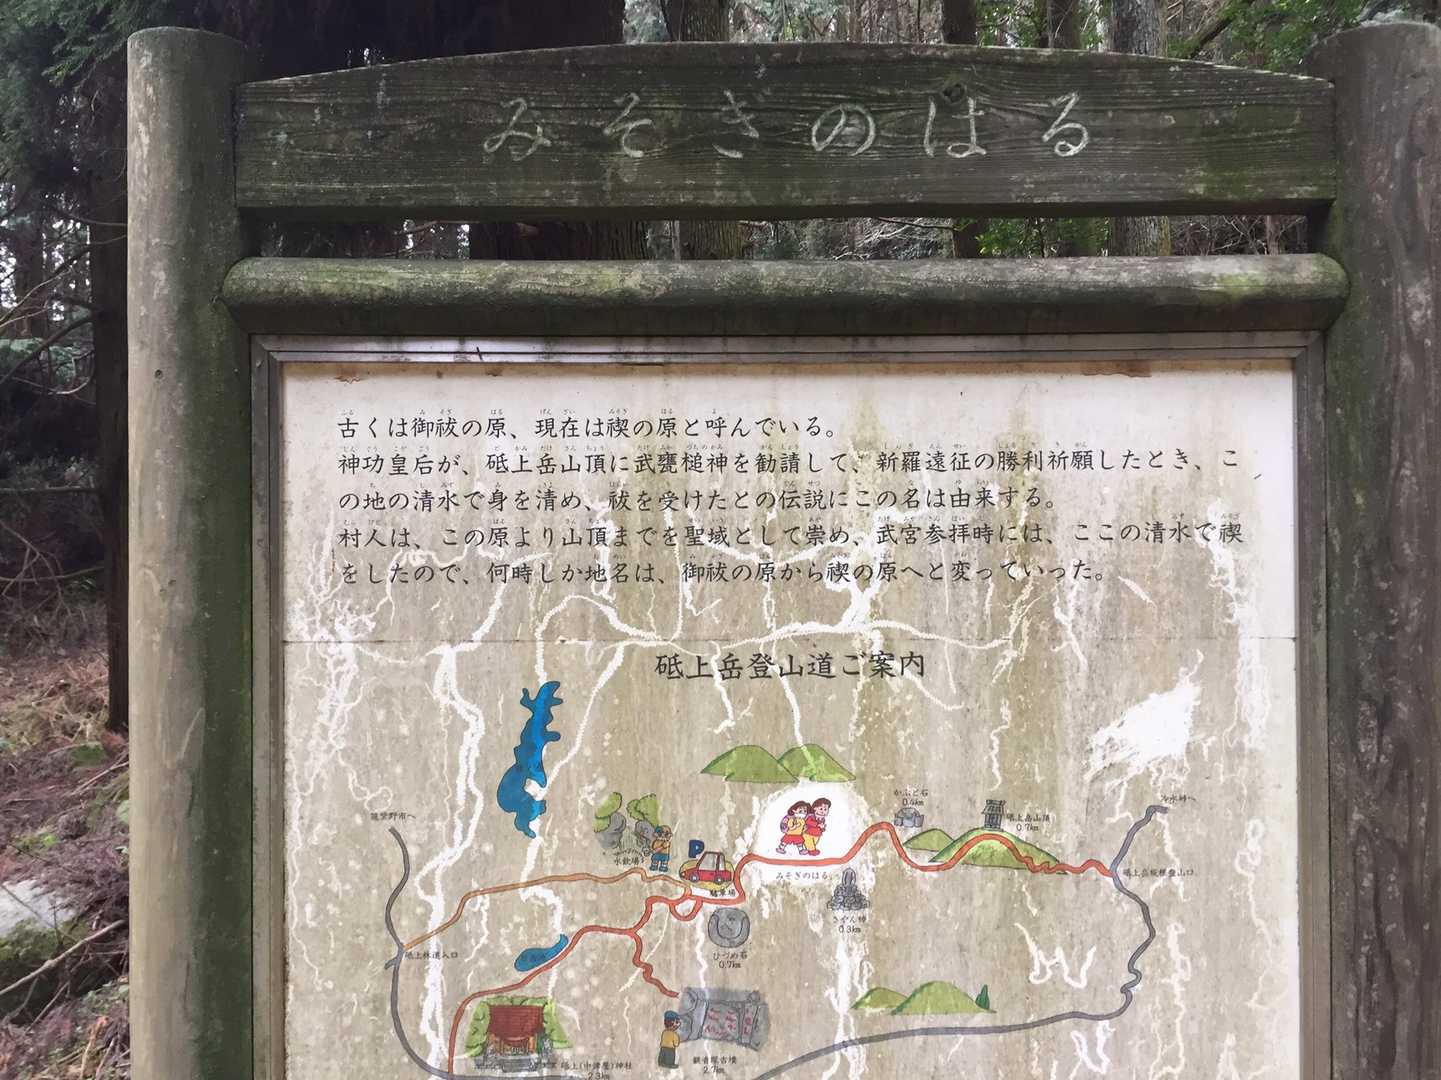 みそぎのはる
古くは御祓の原、現在は禊の原と呼んでいる。
神功皇后が、砥上岳山頂に武甕槌神を勧請して、新羅遠征の勝利祈願したとき、こ
の地の清水で身を清め、祓を受けたとの伝説にこの名は由来する。
村人は、この原より山頂までを聖域として崇め、武宮参拝時には、ここの清水で禊
をしたので、何時しか地名は、御祓の原から禊の原へと変っていった。
砥上岳登山道ご案内
かぶと石
0.4km
冷水峠へ
筑紫野市へ
砥上岳山頂
0.7km
P
水飲場
駐車場
みそぎのはる
砥上岳坂根登山口
さやん神
0.3km
砥上林道入口
ひづめ石
0.7km
観音塚古墳
2.7km
砥上(中津屋)神社
2.3km